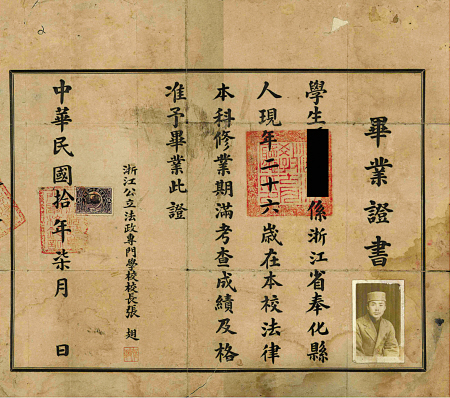 畢業證書
學生 係浙江省奉化縣
人現年二十六歲在本校法律
本科修業期滿考查成績及格
准予畢業此證
浙江公立法政專門學校校長張
中華民國拾年柒月 日
2